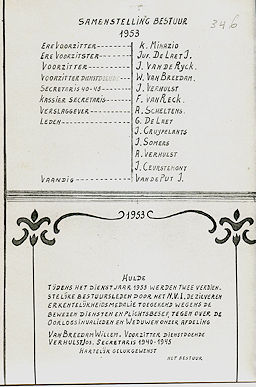 346
SAMENSTELLING BESTUUR
1953
EREVOORZITTER K. MINAZIO
EREVOORZITSTER JUF. DE LAET J.
VOORZITTER J. VAN DE RYCK.
VOORZITTER DIENSTDOENDE W. VAN BREEDAM.
SECRETARIS 40-45 J. VERHULST
KASSIER SECRETARIS F. VAN RECK.
VERSLAGGEVER A. SCHELTENS.
LEDEN G. DE LAET
J. CRUYPELANTS
J. SOMERS
A. VERHULST
J. CEURSTEMONT
VAANDIG VAN DE PUT J.
1953
HULDE
TIJDENS HET DIENSTJAAR 1953 WERDEN TWEE VERDIEN-
STELIJKE BESTUURSLEDEN DOOR HET N.V.I. DE ZILVEREN
ERKENTELIJKHEIDSMEDALIE TOEGEKEND WEGENS DE
BEWEZEN DIENSTEN EN PLICHTSBESEF TEGEN OVER DE
OORLOGSINVALIEDEN EN WEDUWEN ONZER AFDELING
VAN BREEDAM WILLEM. VOORZITTER DIENSTDOENDE
VERHULST JOS. SECRETARIS 1940-1945
HARTELIJK GELUKGEWENST
HET BESTUUR